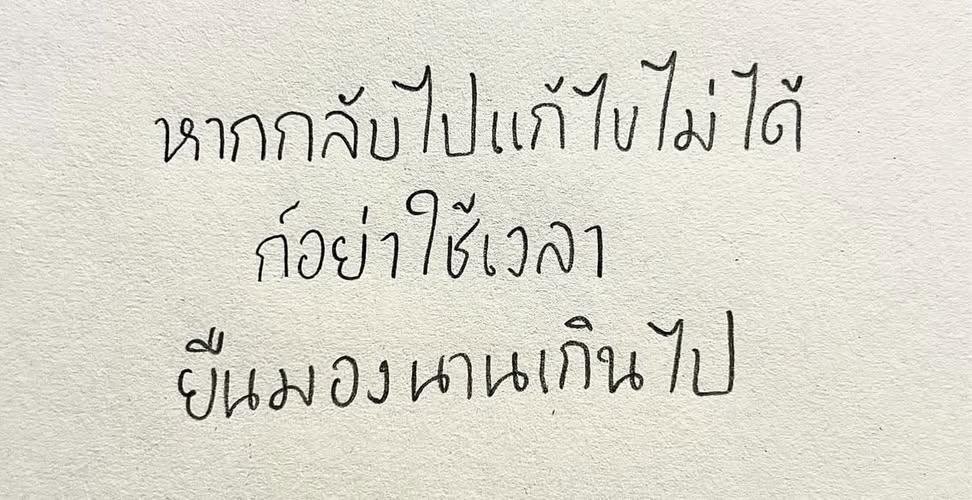 หากกลับไปแก้ไขไม่ได้
ก็อย่าใช้เวลา
ยืนมองนานเกินไป